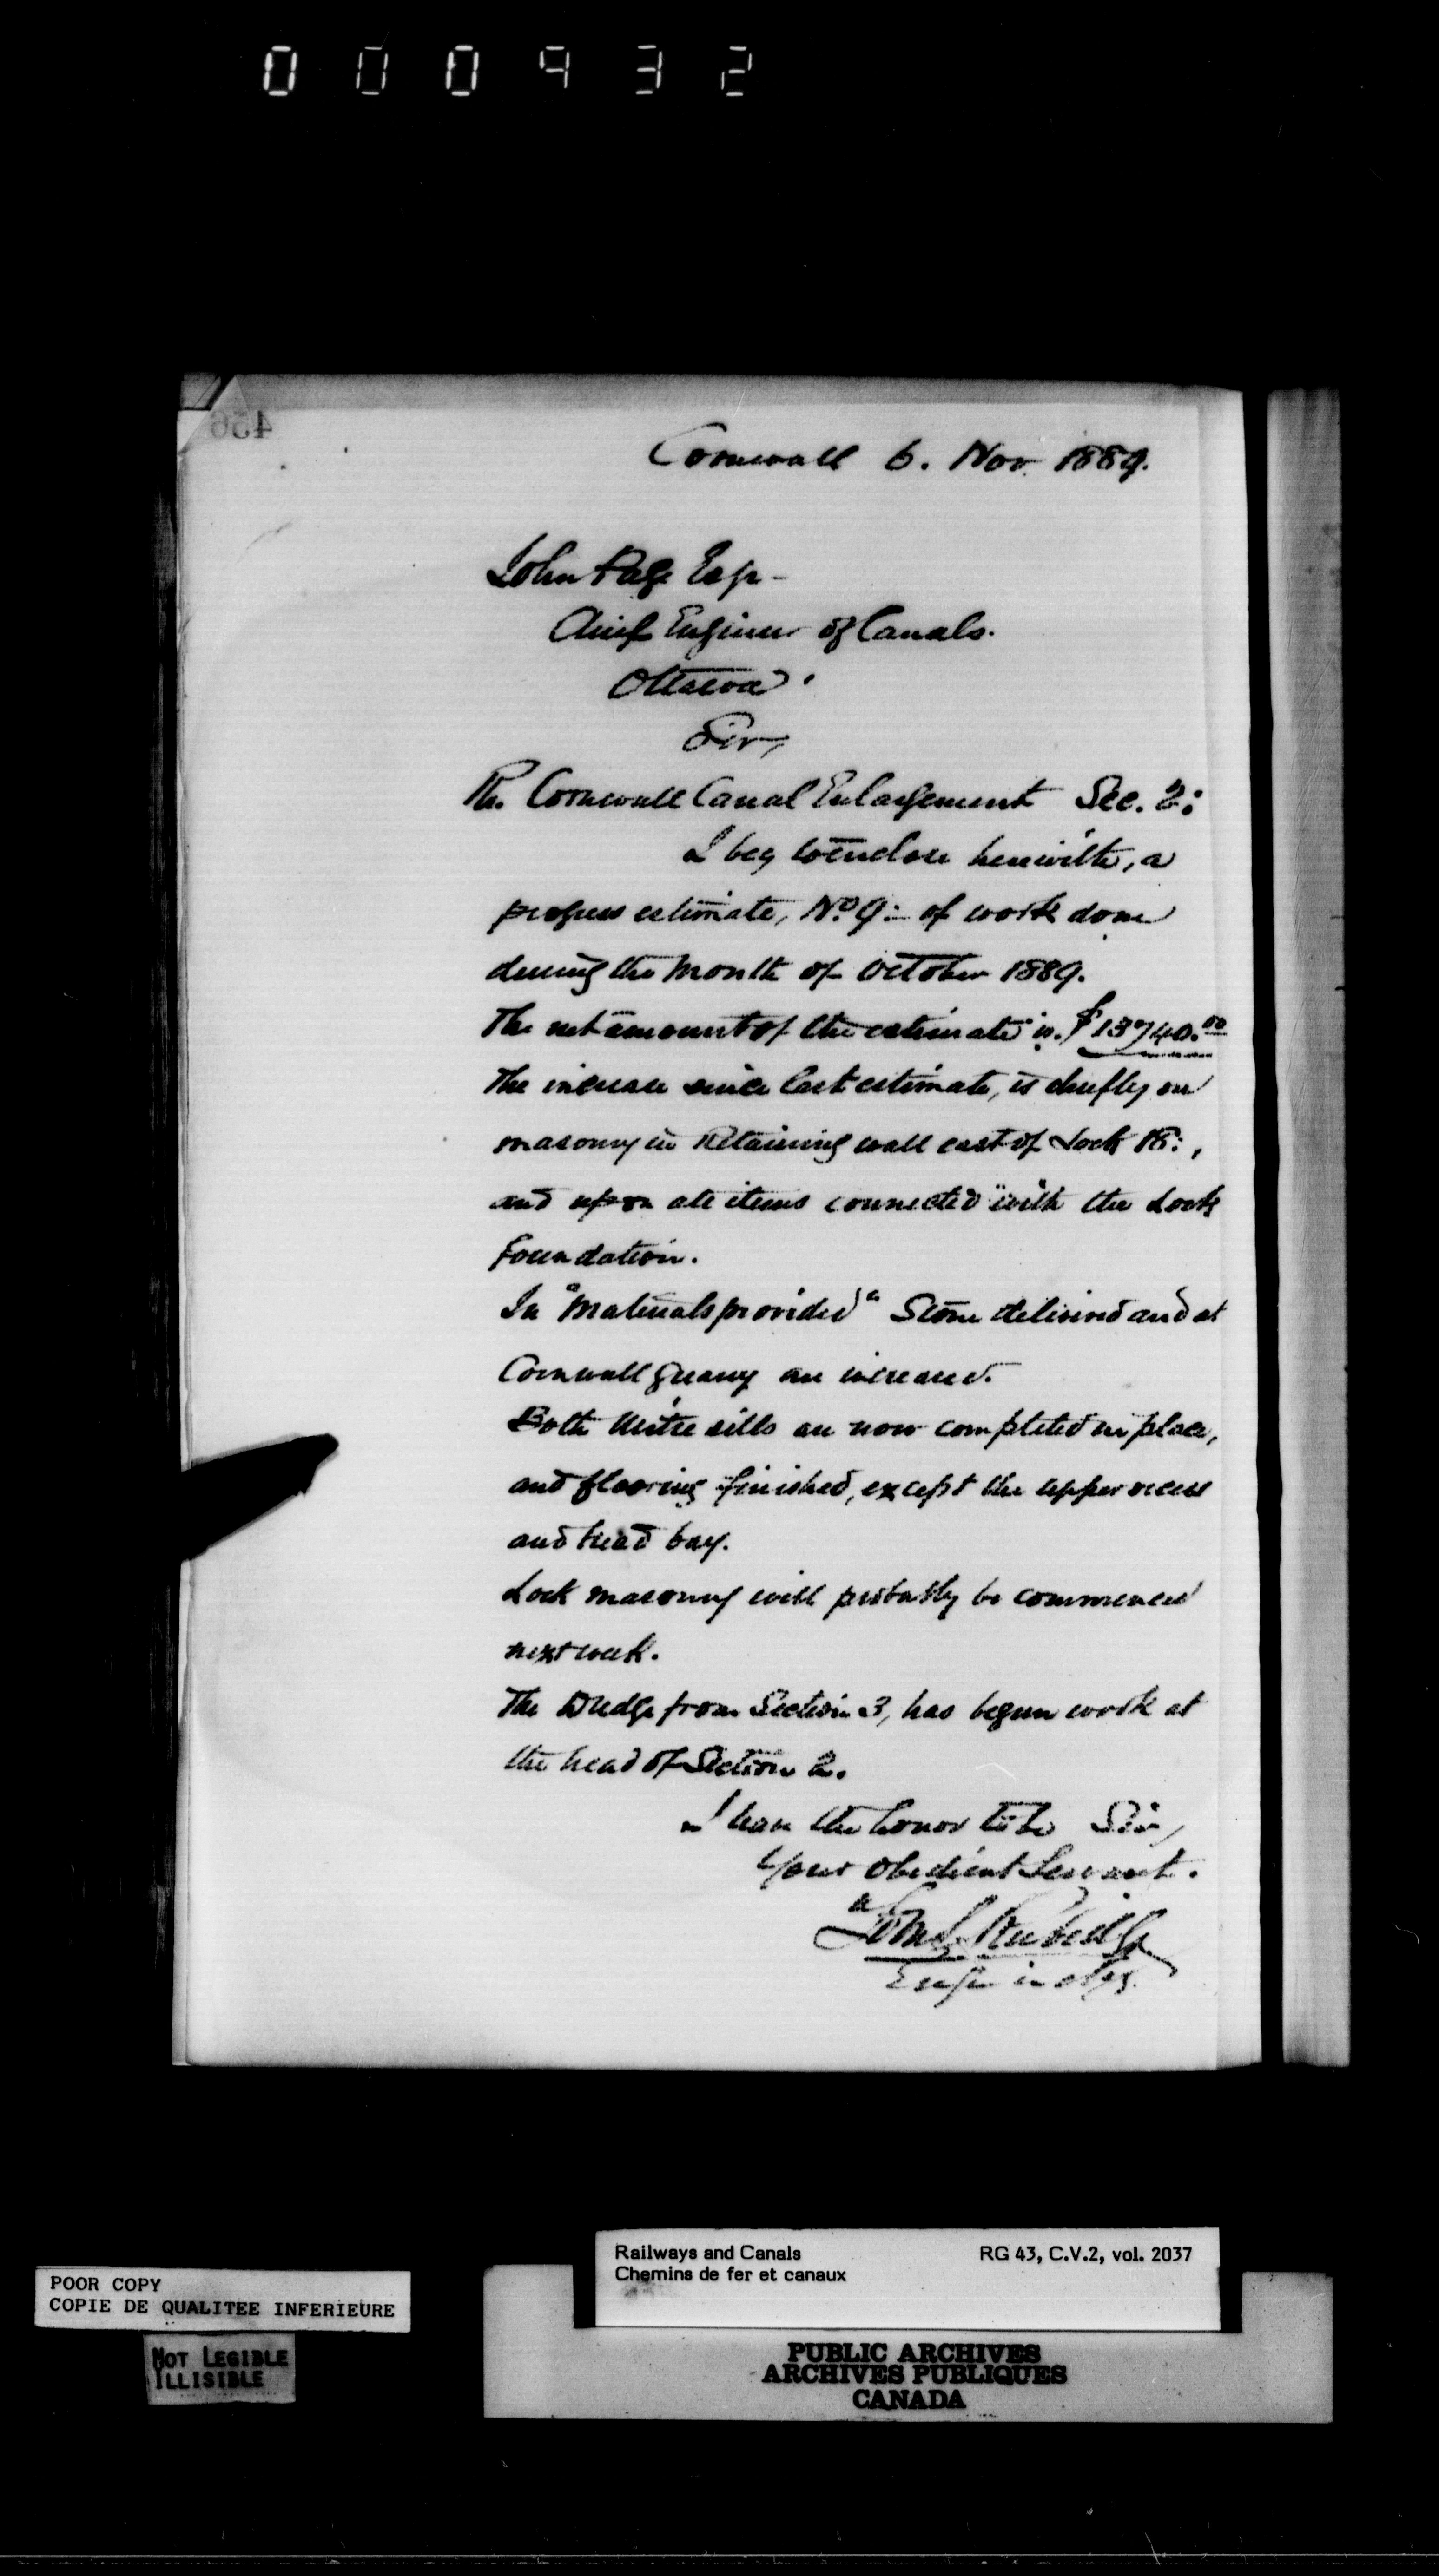 000932
456
Cornwall 6. Nov 1889.
John Page Esqr -
Chief Engineer of Canals.
Ottawa.
Sir,
Re. Cornwall Canal Enlargement Sec. 2:
I beg to enclose herewith, a
progress estimate, No. 9:- of work done
during the month of October 1889.
The net amount of the estimate is. $13740.00
The increase since last estimate, is chiefly on
masonry in Retaining wall east of Lock 18:,
and upon all items connected with the Lock
foundation.
In "Materials provided" Stone delivered and at
Cornwall Quarry are increased.
Both Mitre sills are now completed in place,
and flooring finished, except the upper recess
and head bay.
Lock masonry will probably be commenced
next week.
The Dredge from Section 3, has begun work at
the head of Section 2.
I have the honor to be Sir,
Your Obedient Servant.
Tom S. Rubidge
Engr in chg.
Railways and Canals RG 43, C.V.2, vol. 2037
Chemins de fer et canaux
POOR COPY
COPIE DE QUALITEE INFERIEURE
NOT LEGIBLE
ILLISIBLE
PUBLIC ARCHIVES
ARCHIVES PUBLIQUES
CANADA